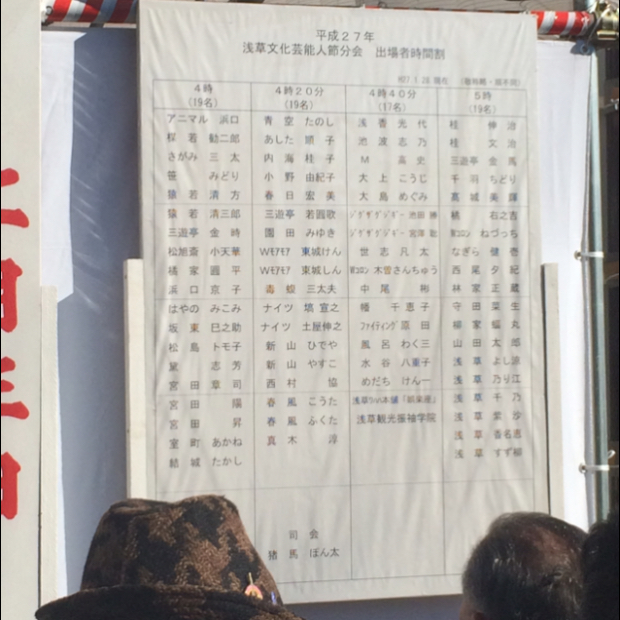 平成27年
浅草文化芸能人節分会 出場者時間割
H27.1.28 現在 (敬称略・順不同)
4時 4時20分 4時40分 5時
(19名) (19名) (17名) (19名)
アニマル 浜口 青空 たのし 浅香 光代 桂 伸治
桜若 勧二郎 あした 順子 池波 志乃 桂 文治
さがみ 三太 内海 桂子 M 高史 三遊亭 金馬
笹 みどり 小野 由紀子 大上 こうじ 千羽 ちどり
猿若 清方 春日 宏美 大島 めぐみ 高城 美輝
猿若 清三郎 三遊亭 若圓歌 ジグザグジギー 池田 勝 橘 右之吉
三遊亭 金時 園田 みゆき ジグザグジギー 宮澤 聡 Wコロン ねづっち
松旭斎 小天華 Wモアモア 東城けん 世志 凡太 なぎら 健壱
橘家 圓平 Wモアモア 東城しん Wコロン 木曽さんちゅう 西尾 夕紀
浜口 京子 毒蝮 三太夫 中尾 彬 林家 正蔵
はやの みこみ ナイツ 塙 宣之 幡 千恵子 守田 菜生
坂東 巳之助 ナイツ 土屋伸之 ファイティング 原田 柳家 蝠丸
松島 トモ子 新山 ひでや 風呂 わく三 山田 太郎
黛 志芳 新山 やすこ 水谷 八重子 浅草 よし涼
宮田 章司 西村 協 めだち けん一 浅草 乃り江
宮田 陽 春風 こうた 浅草 千乃
宮田 昇 春風 ふくた 浅草観光振袖学院 浅草 紫沙
室町 あかね 真木 淳 浅草 香名恵
結城 たかし 浅草 すず柳
司会
猪馬 ぽん太